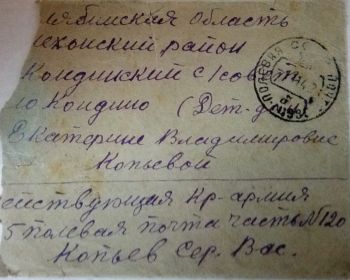 лябинская Область
иховский район
Кондинский с/совет
ло Кондино (Дет-д
Екатерине Владимировне
Копьевой
ействующая Кр-армия
5 полевая почта часть №120
Копьев Сер. Вас.